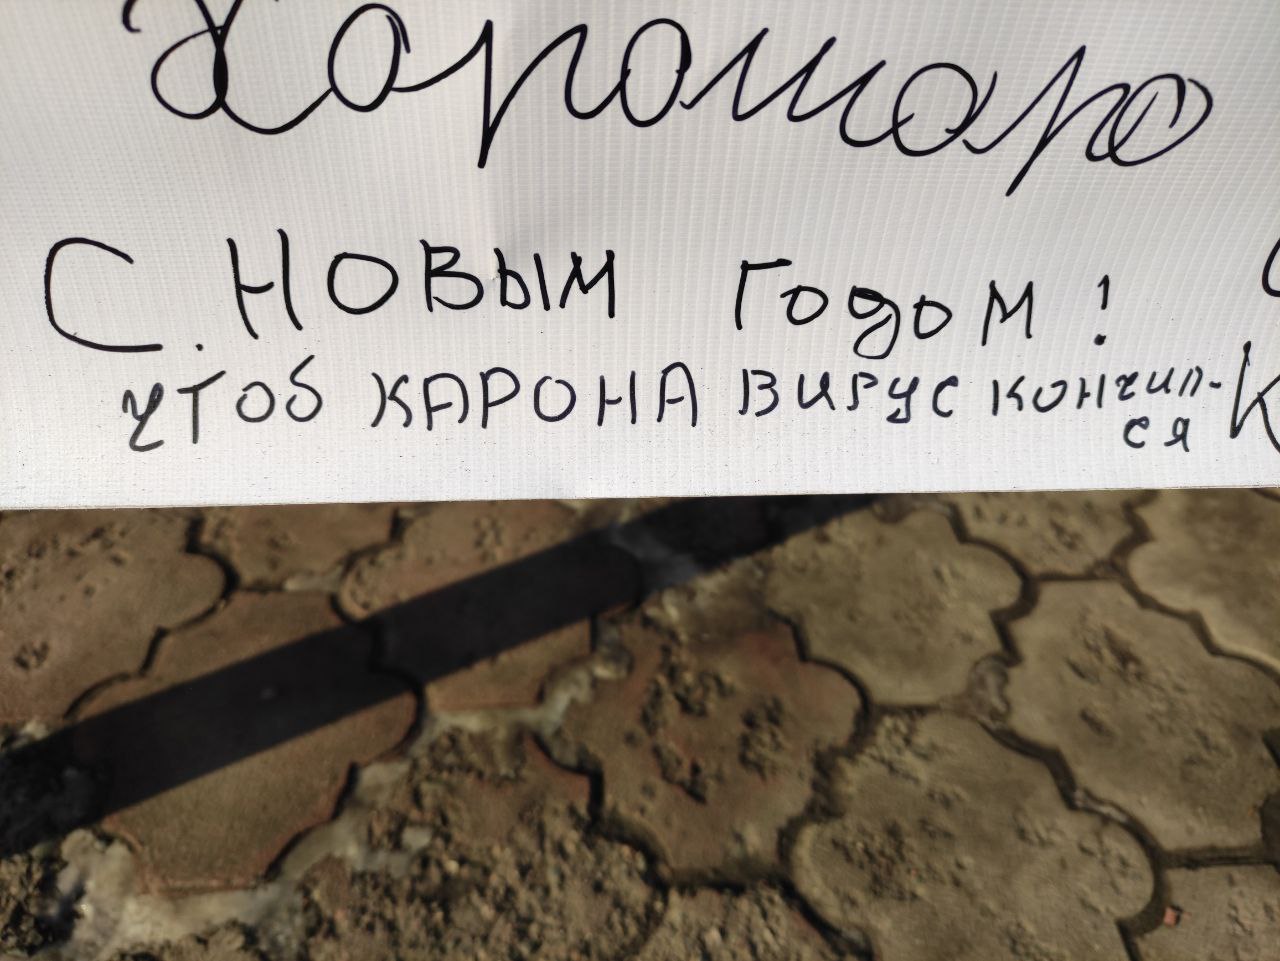 Хорошого
С. Новым годом!
чтоб КАРОНА ВИРУС кончил-
ся